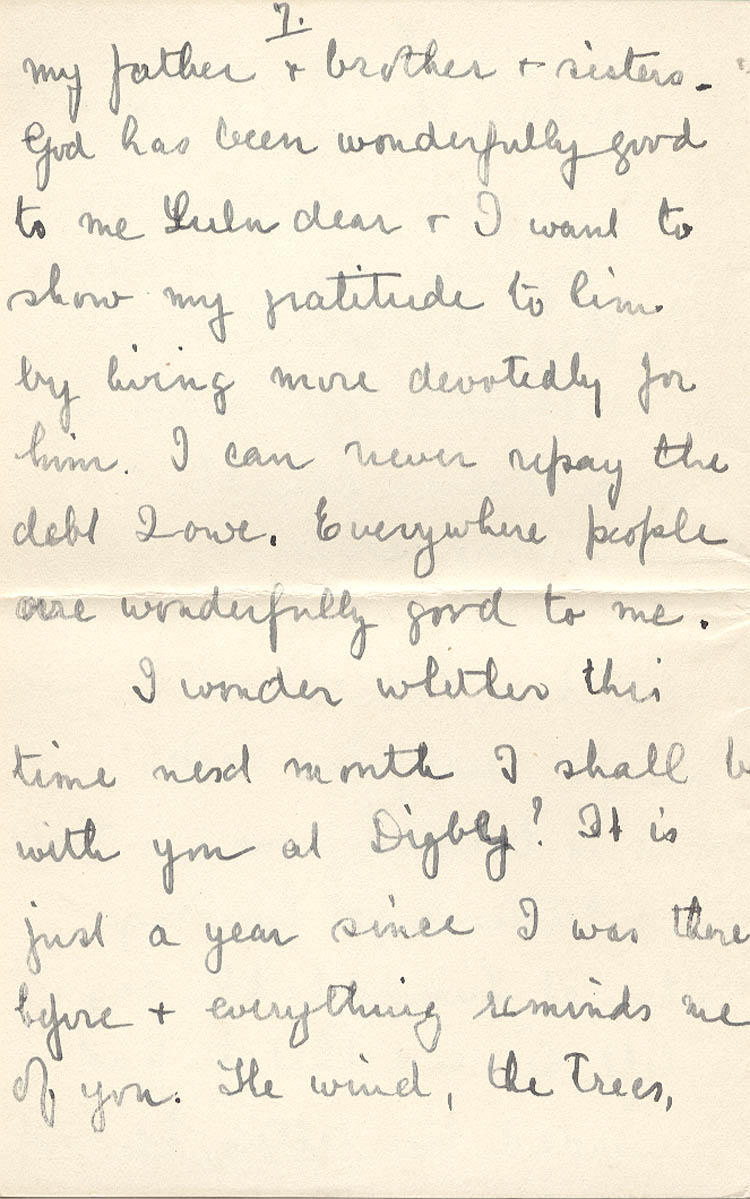 7.
my father + brother + sisters.
God has been wonderfully good
to me Lulu dear + I want to
show my gratitude to him
by living more devotedly for
him. I can never repay the
debt I owe. Everywhere people
are wonderfully good to me.
I wonder whether this
time next month I shall b
with you at Digby? It is
just a year since I was there
before + everything reminds me
of you. The wind, the Trees,